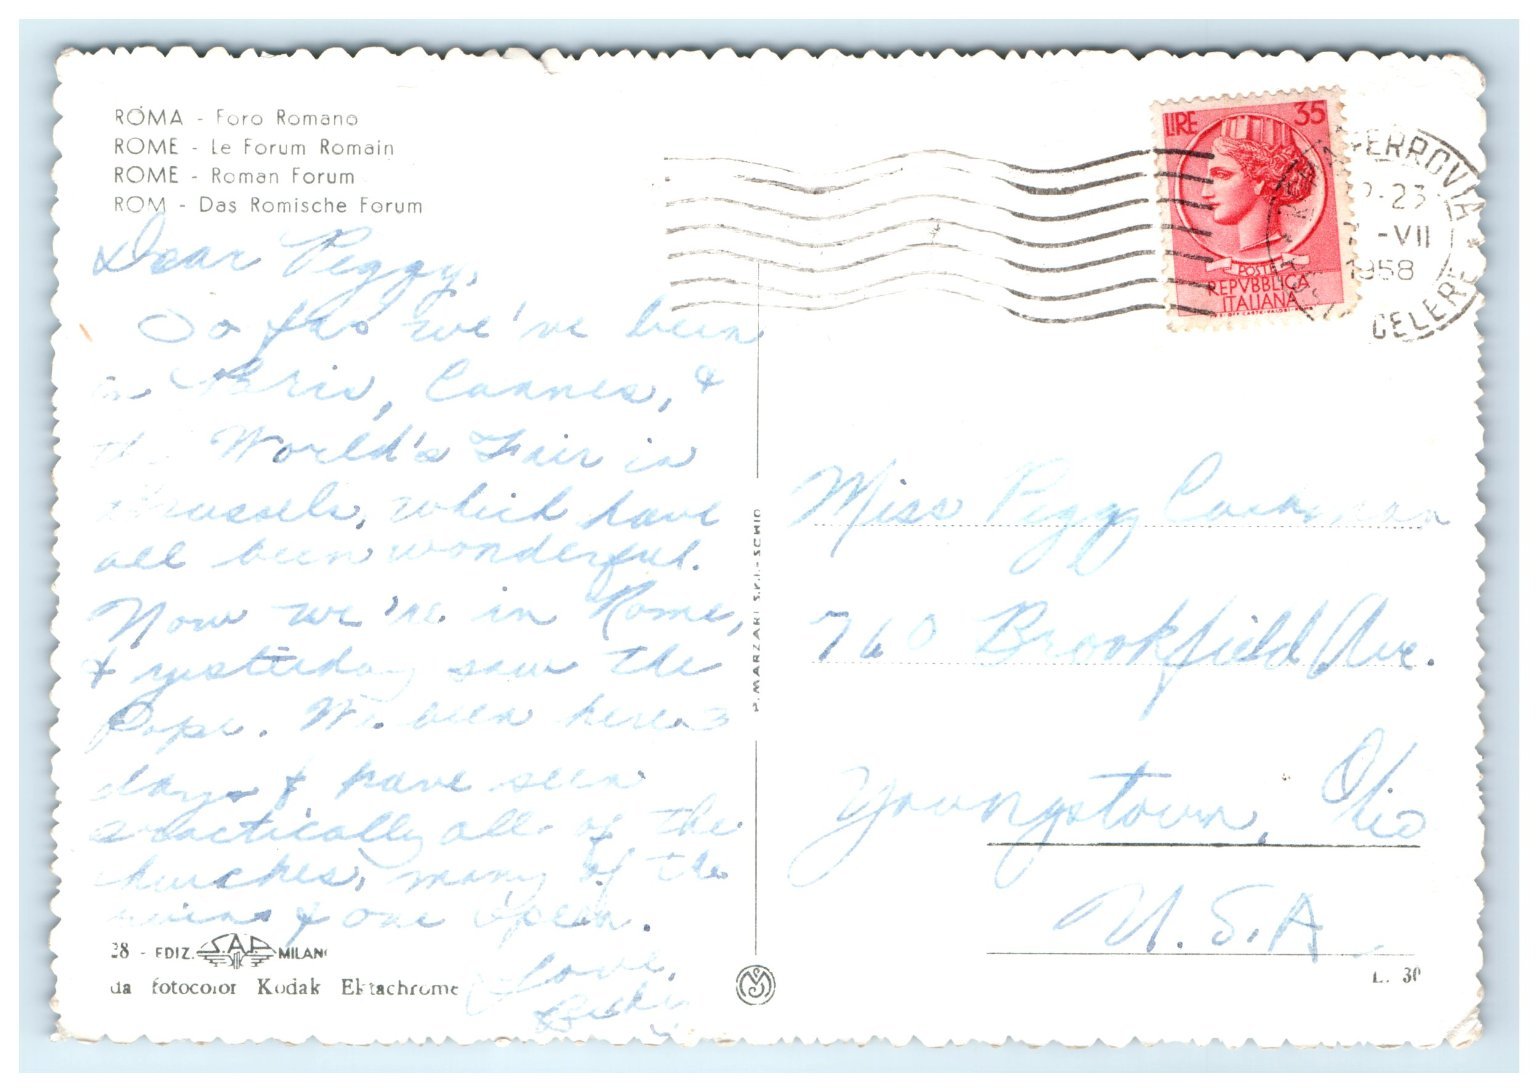 ROMA - Foro Romano
ROME - Le Forum Romain
ROME - Roman Forum
ROM - Das Romische Forum
Dear Peggy,
So far we've been
in Paris, Cannes, &
the World's Fair in
Brussels, which have
all been wonderful.
Now we're in Rome,
& yesterday saw the
Pope. We been here 3
days & have seen
practically all of the
churches, many of the
ruins & one opera.
Love,
28 - EDIZ. S.A.P. MILANO
da fotocolor Kodak Ektachrome
P. MARZARI S.R.L. - SCHIO
LIRE 35
POSTE
REPVBBLICA
ITALIANA
FERROVIA
22-23
-VII
1958
CELERE
Miss Peggy
760 Brookfield Ave.
Youngstown, Ohio
U.S.A.
L. 30